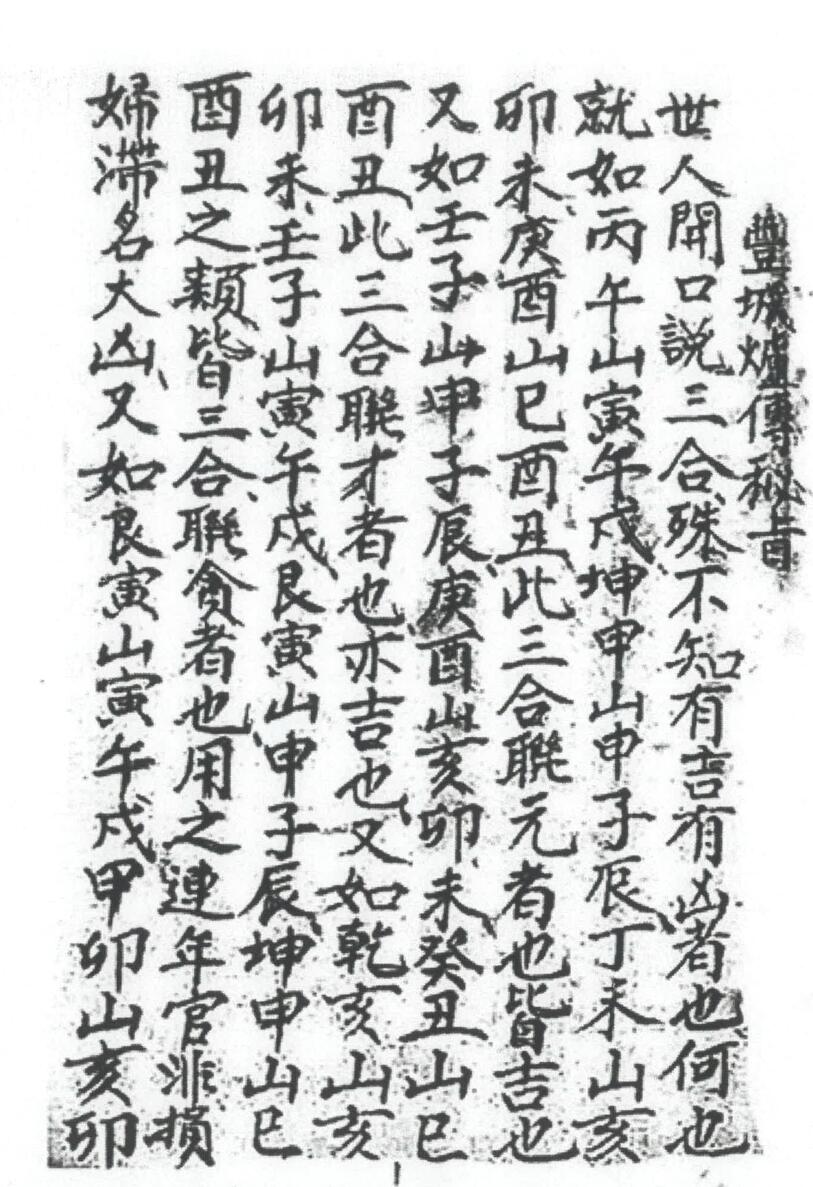 豐城爐傳秘旨
世人開口說三合殊不知有吉有凶者也何也
就如丙午山寅午戌坤申山申子辰丁未山亥
卯未庚酉山巳酉丑此三合聯元者也皆吉也
又如壬子山申子辰庚酉山亥卯未癸丑山巳
酉丑此三合聯才者也亦吉也又如乾亥山亥
卯未壬子山寅午戌艮寅山申子辰坤申山巳
酉丑之類皆三合聯貪者也用之連年官非損
婦滞名大凶又如艮寅山寅午戌甲卯山亥卯